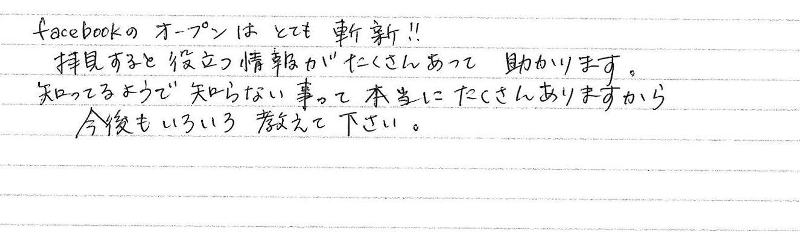 facebookの オープンは とても 斬新!!
拝見すると 役立つ情報がたくさんあって 助かります。
知ってるようで 知らない事って 本当に たくさんありますから
今後もいろいろ 教えて下さい。